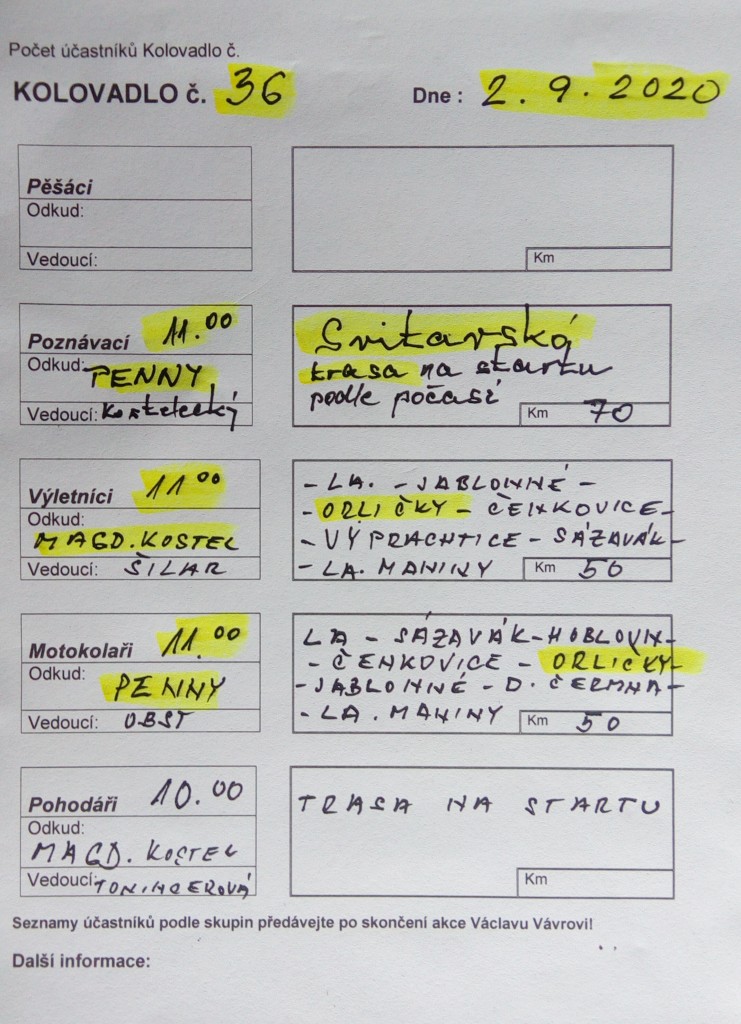 Počet účastníků Kolovadlo č.
KOLOVADLO č. 36 Dne : 2.9.2020
Pěšáci
Odkud:
Vedoucí:
Km
Poznávací 11.00
Odkud: PENNY
Vedoucí: Kostelecký
Svitavská
trasa na startu
podle počasí
Km 70
Výletníci 11.00
Odkud:
MAGD. KOSTEL
Vedoucí: ŠILAR
- LA. - JABLONNÉ -
- ORLIČKY - ČENKOVICE -
- VÝPRACHTICE - SÁZAVÁK -
- LA. MANINY Km 50
Motokolaři 11.00
Odkud:
PENNY
Vedoucí: OBST
LA - SÁZAVÁK - HOBLOVN -
- ČENKOVICE - ORLIČKY -
- JABLONNÉ - D. ČERMNA -
- LA. MANINY Km 50
Pohodáři 10.00
Odkud:
MAGD. KOSTEL
Vedoucí: TONINGEROVÁ
TRASA NA STARTU
Km
Seznamy účastníků podle skupin předávejte po skončení akce Václavu Vávrovi!
Další informace: